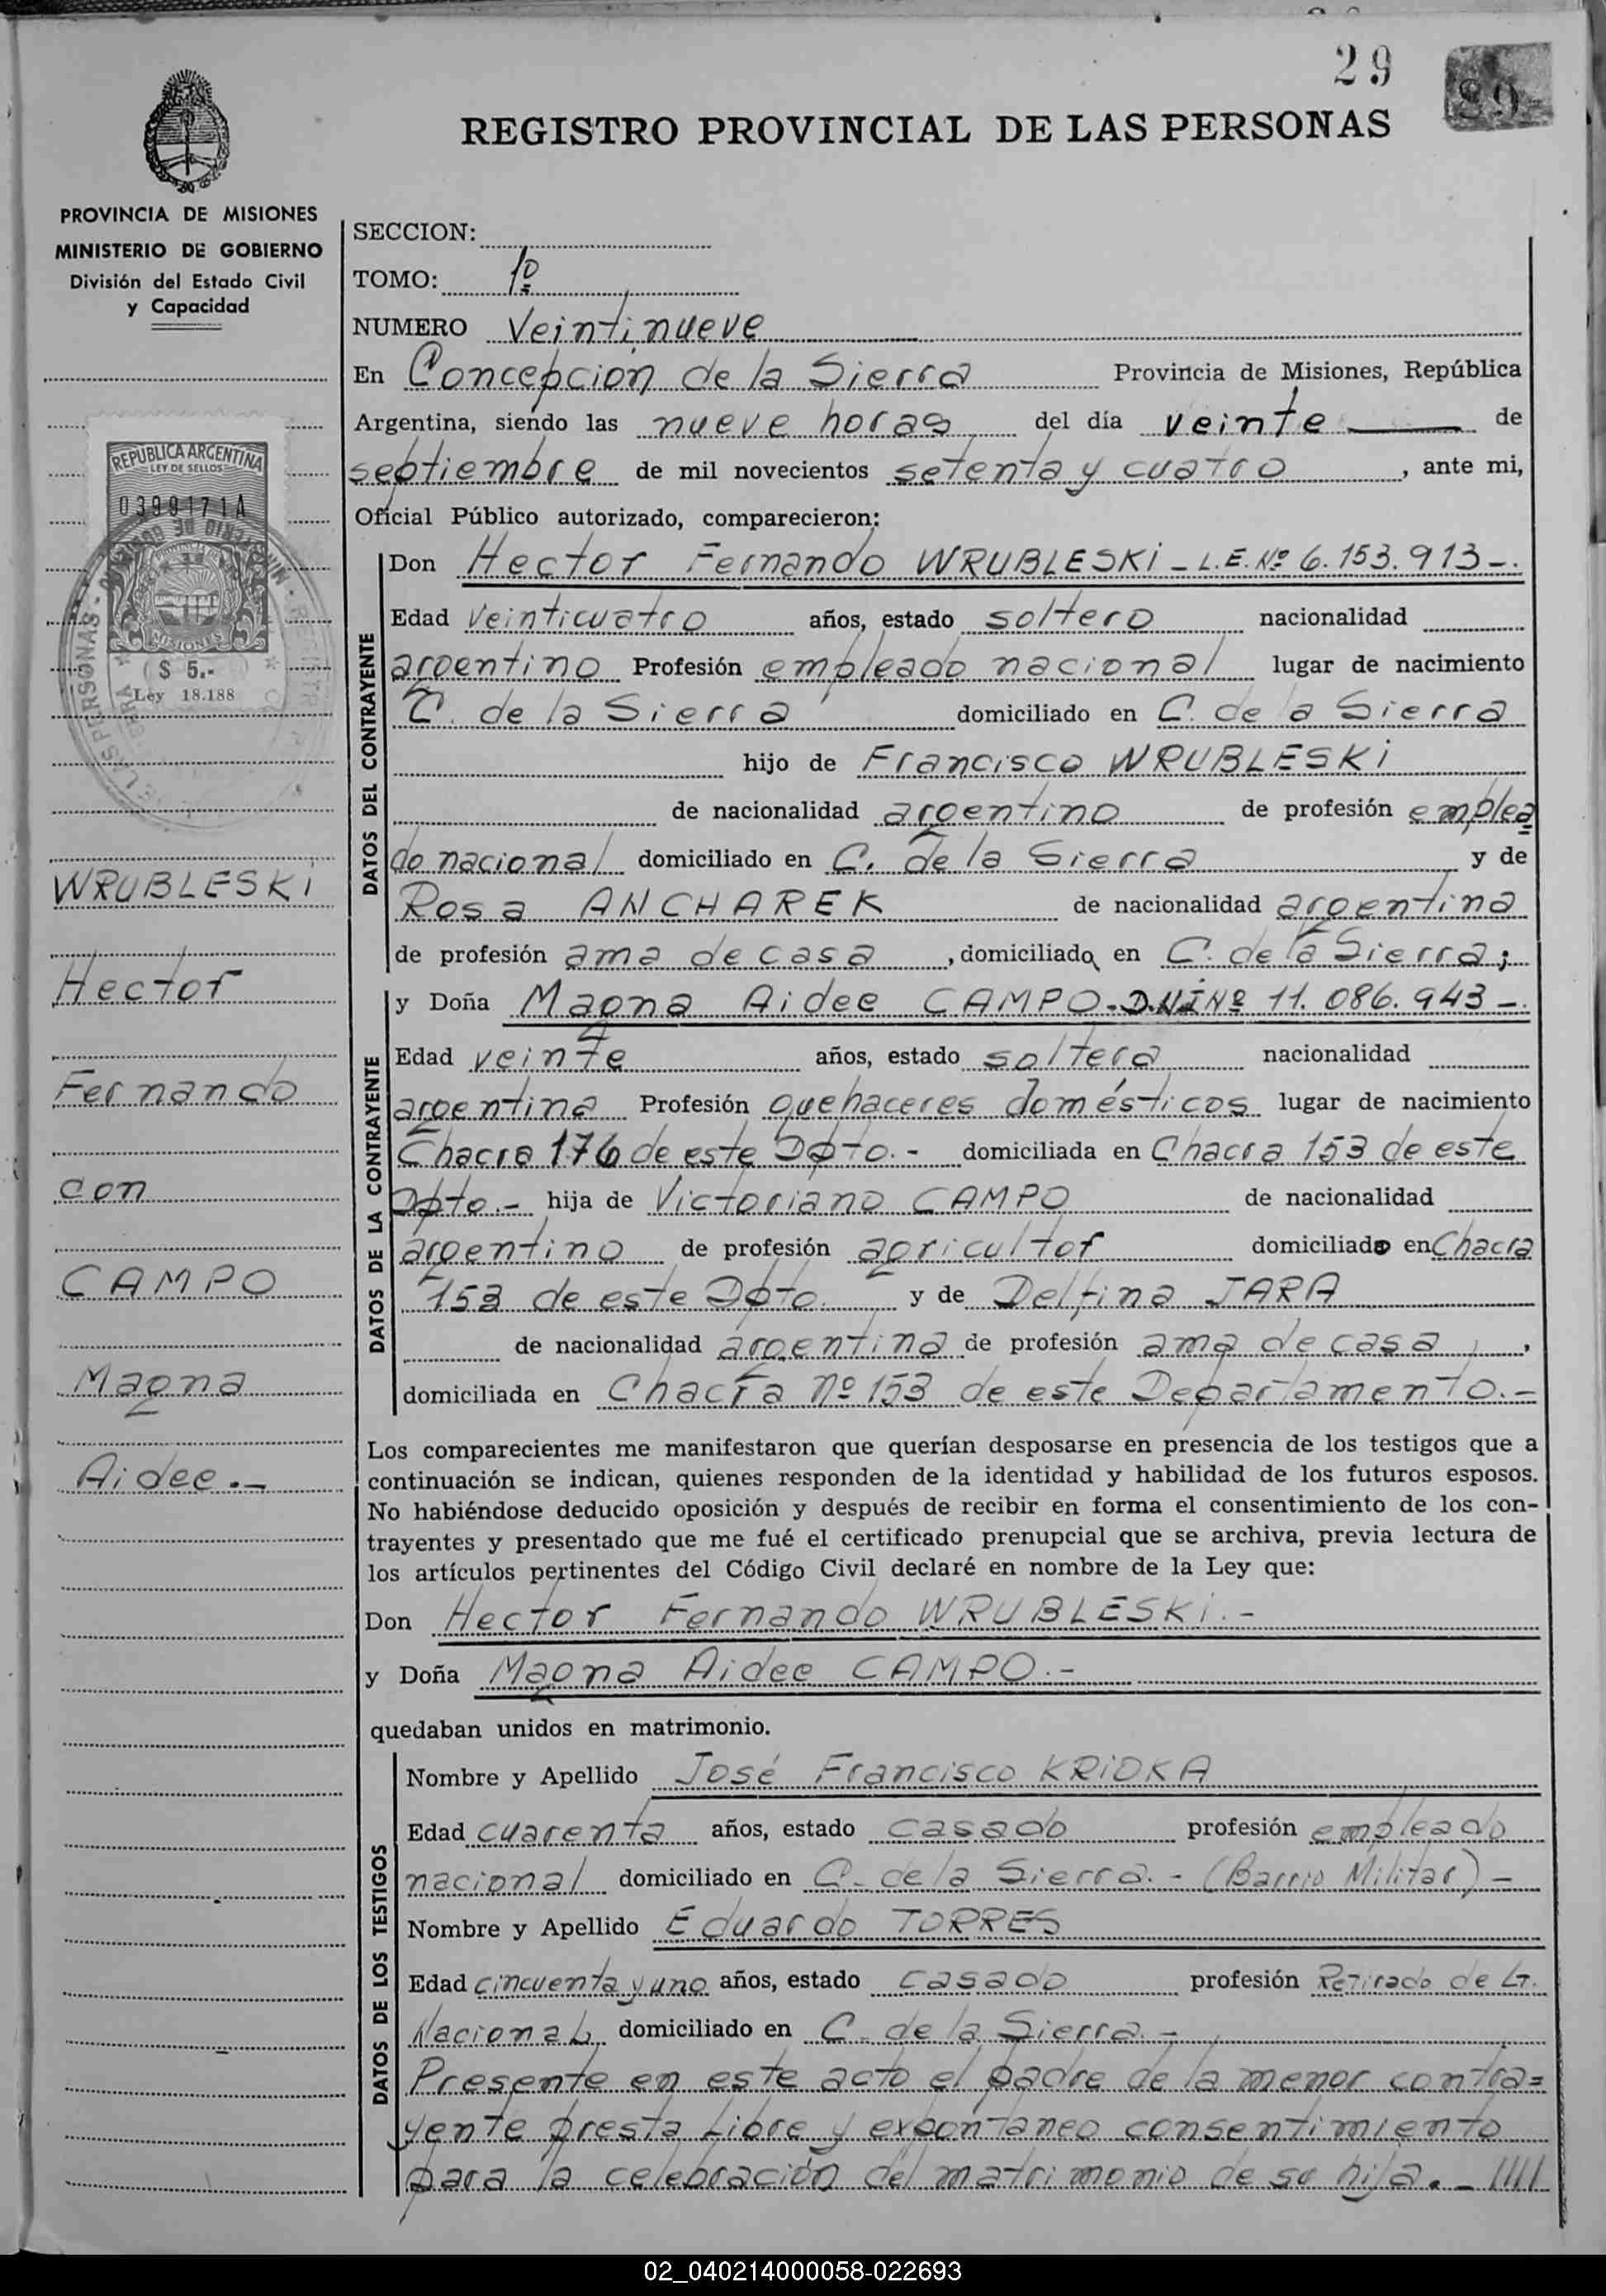 29
89
REGISTRO PROVINCIAL DE LAS PERSONAS
PROVINCIA DE MISIONES
MINISTERIO DE GOBIERNO
División del Estado Civil
y Capacidad
REPUBLICA ARGENTINA
LEY DE SELLOS
0399171A
MISIONES
$ 5.-
Ley 18.188
WRUBLESKi
Hector
Fernando
con
CAMPO
Magna
Aidee.-
SECCION:
TOMO: 1º
NUMERO Veintinueve
En Concepción de la Sierra Provincia de Misiones, República
Argentina, siendo las nueve horas del día veinte de
septiembre de mil novecientos setenta y cuatro, ante mi,
Oficial Público autorizado, comparecieron:
DATOS DEL CONTRAYENTE
Don Hector Fernando WRUBLESKi - L.E. Nº 6.153.913-.
Edad Veinticuatro años, estado soltero nacionalidad
argentino Profesión empleado nacional lugar de nacimiento
C. de la Sierra domiciliado en C. de la Sierra
hijo de Francisco WRUBLESKi
de nacionalidad argentino de profesión emplea
do nacional domiciliado en C. de la Sierra y de
Rosa ANCHAREK de nacionalidad argentina
de profesión ama de casa, domiciliada en C. de la Sierra;
DATOS DE LA CONTRAYENTE
y Doña Magna Aidee CAMPO-D.NI Nº 11.086.943-.
Edad veinte años, estado soltera nacionalidad
argentina Profesión quehaceres domésticos lugar de nacimiento
Chacra 176 de este Dpto.- domiciliada en Chacra 153 de este
Dpto.- hija de Victoriano CAMPO de nacionalidad
argentino de profesión agricultor domiciliado en Chacra
153 de este Dpto. y de Delfina JARA
de nacionalidad argentina de profesión ama de casa,
domiciliada en Chacra nº 153 de este Departamento.-
Los comparecientes me manifestaron que querían desposarse en presencia de los testigos que a
continuación se indican, quienes responden de la identidad y habilidad de los futuros esposos.
No habiéndose deducido oposición y después de recibir en forma el consentimiento de los con-
trayentes y presentado que me fué el certificado prenupcial que se archiva, previa lectura de
los artículos pertinentes del Código Civil declaré en nombre de la Ley que:
Don Hector Fernando WRUBLESKi.-
y Doña Magna Aidee CAMPO.-
quedaban unidos en matrimonio.
DATOS DE LOS TESTIGOS
Nombre y Apellido José Francisco KRiOKA
Edad cuarenta años, estado casado profesión empleado
nacional domiciliado en C. de la Sierra.- (Barrio Militar)-
Nombre y Apellido Eduardo TORRES
Edad cincuenta y uno años, estado casado profesión Retirado de G.
Nacional domiciliado en C. de la Sierra.-
Presente en este acto el padre de la menor contra=
yente presta libre y expontaneo consentimiento
para la celebración del matrimonio de su hija.-
02_040214000058-022693